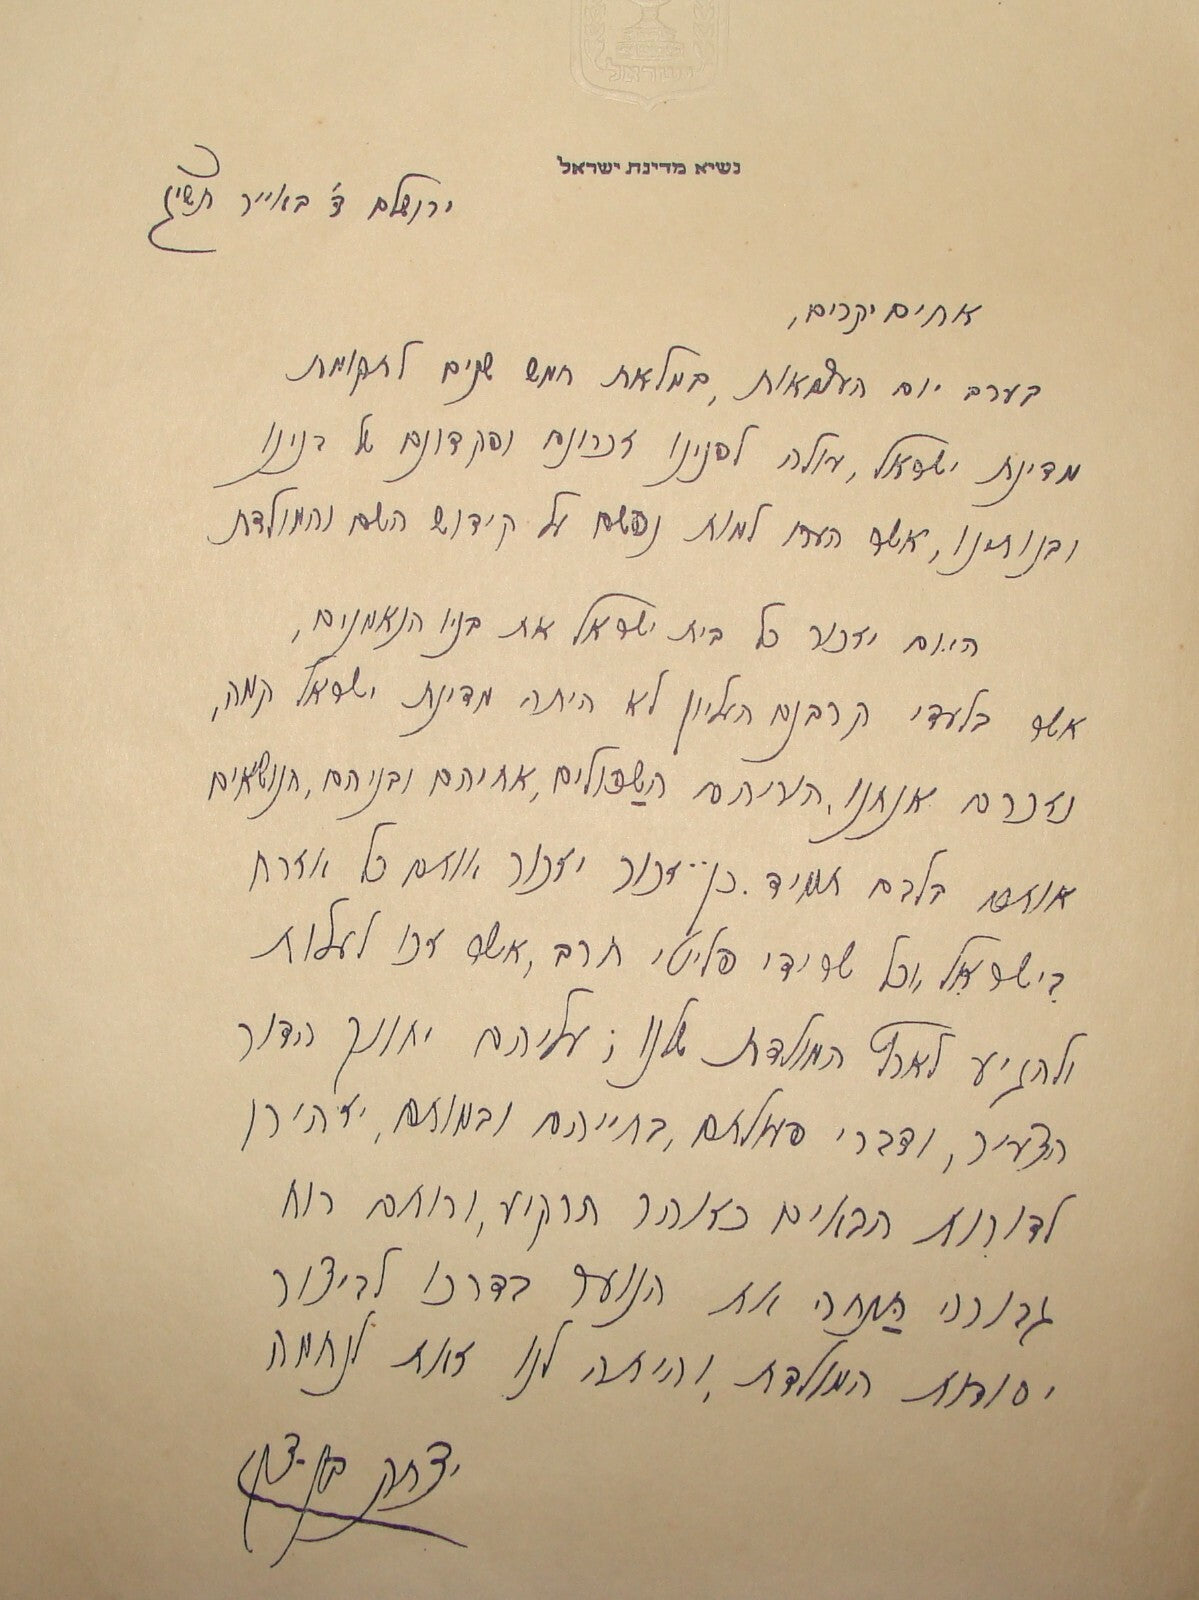 ישראל
נשיא מדינת ישראל
ירושלים ד' באייר תשי"ג
אחים יקרים,
בערב יום העצמאות, במלאת חמש שנים לתקומת
מדינת ישראל, עולה לפנינו זכרונם ופקדונם של בנינו
ובנותינו, אשר הערו למות נפשם על קידוש השם והמולדת
היום יזכור כל בית ישראל את בניו הנאמנים,
אשר בלעדי קרבנם העליון לא היתה מדינת ישראל קמה,
נזכרם אנחנו, הוריהם השכולים, אחיהם ובניהם, הנושאים
אותם בלבם תמיד. כן זכור יזכור אותם כל אזרח
בישראל, וכל שרידי פליטי חרב, אשר זכו לעלות
ולהגיע לארץ המולדת שלנו; עליהם יחונך הדור
הצעיר, ודברי פעולתם, בחייהם ובמותם, יזהירו
לדורות הבאים כזוהר הרקיע, ורוחם רוח
גבורה תנחה את הנוער בדרכו לביצור
יסודות המולדת, והיתה לנו זאת לנחמה
יצחק בן-צבי